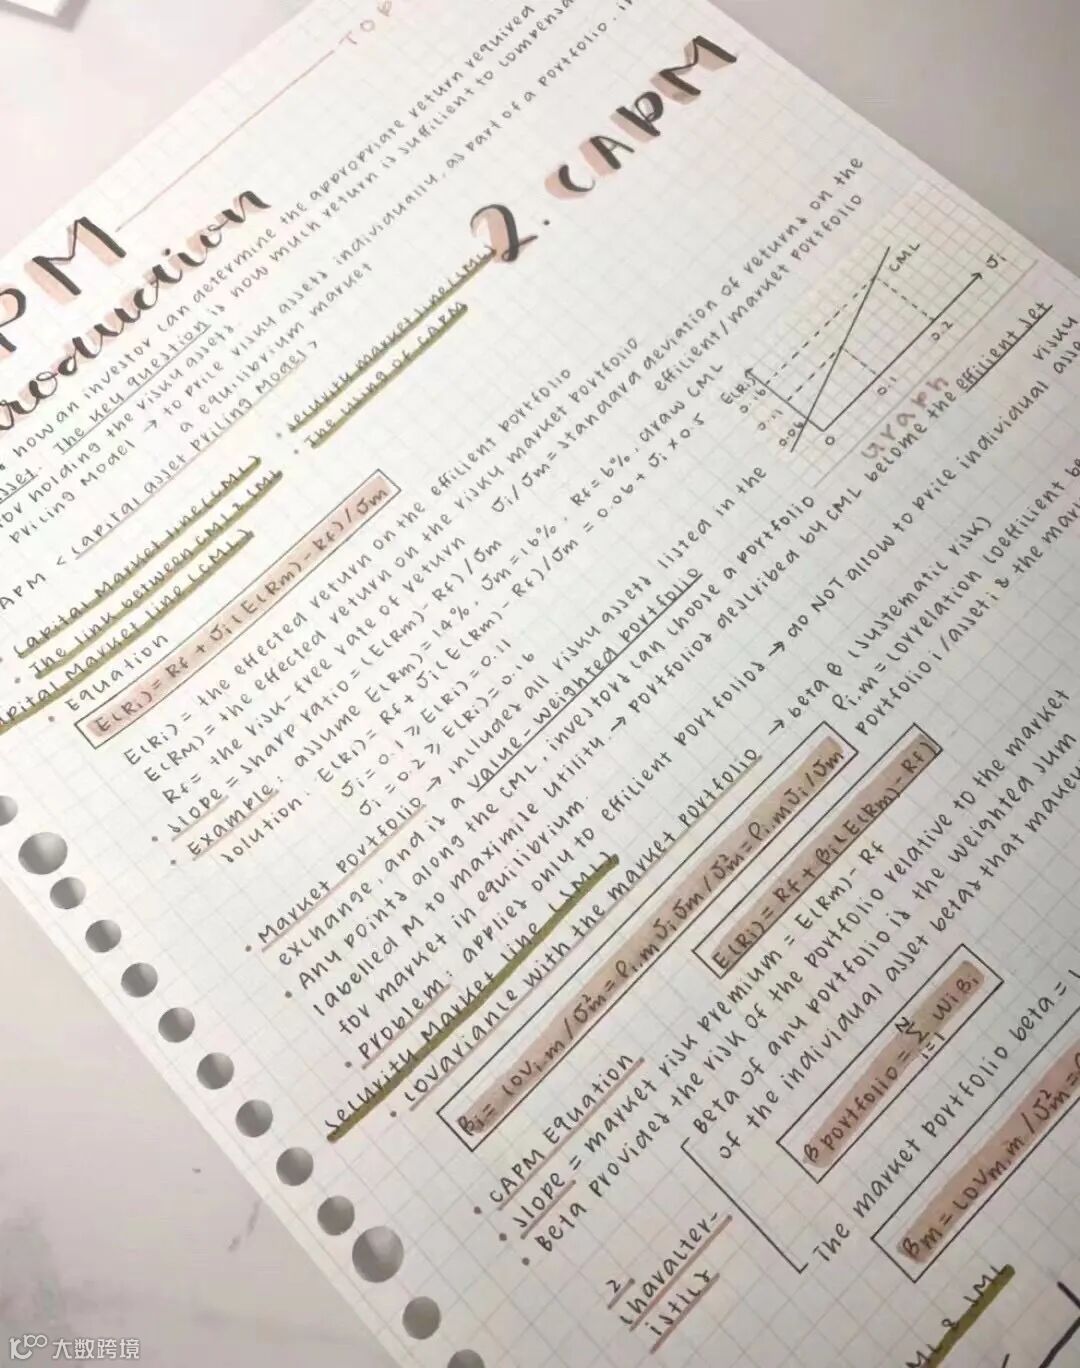 TOP
PM
2. CAPM
now an investor can determine the appropriate return required
asset. The key question is how much return is sufficient to compensa
for holding the risky assets.
Pricing Model → to price risky assets individually, as part of a portfolio. in
a equilibrium market
APM < Capital Asset Pricing Model >
• Capital Market Line (CML)
• The link between CML & SML
• Security Market Line (SML)
• The using of CAPM
pital Market Line (CML)
• Equation
E(Ri) = Rf + σi(E(Rm) - Rf)/σm
E(Ri) = the effected return on the efficient portfolio
E(RM) = the effected return on the risky market portfolio
Rf = the risk-free rate of return
σi/σm = standard deviation of returns on the
efficient/market portfolio
• Slope = Sharp ratio = (E(Rm) - Rf)/σm
• Example: assume E(Rm) = 14%, σm = 16%, Rf = 6%, draw CML
solution: E(Ri) = Rf + σi(E(Rm) - Rf)/σm = 0.06 + σi × 0.5
σi = 0.1 ≥ E(Ri) = 0.11
σi = 0.2 ≥ E(Ri) = 0.16
E(Ri)
0.16
0.1
0.06
0
0.1
0.2
σi
CML
Graph
• Market portfolio → includes all risky assets listed in the
exchange, and is a value-weighted portfolio
• Any points along the CML, investors can choose a portfolio
labelled M to maximise utility → portfolios described by CML become the efficient set
for market in equilibrium.
• Problem: applies only to efficient portfolios → do NOT allow to price individual asse
risky
Security Market Line (SML)
• Covariance with the market portfolio → beta β (systematic risk)
βi = COVi.m/σ²m = ρi.mσiσm/σ²m = ρi.mσi/σm
ρi.m = correlation coefficient be
portfolio i/asset i & the mar
• CAPM Equation
E(Ri) = Rf + βi(E(Rm) - Rf)
• Slope = market risk premium = E(Rm) - Rf
• Beta provides the risk of the portfolio relative to the market
2
character-
istics
Beta of any portfolio is the weighted sum
of the individual asset betas that makeu
βportfolio = N∑i=1 Wiβi
The market portfolio beta = 1
βm = COVm.m/σ²m =
ML & SML
大数跨境